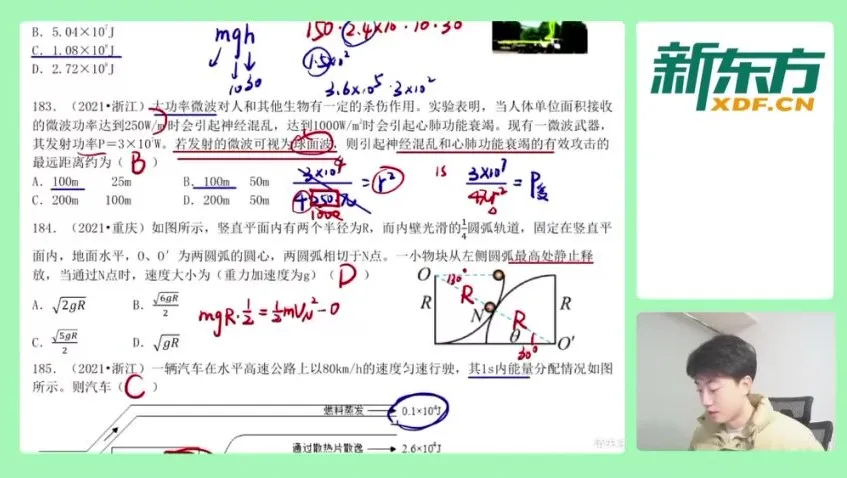 B. 5.04×10⁷J
C. 1.08×10⁸J
D. 2.72×10⁸J
mgh
10 30
150·2.4×10·10·30
1.5×10²
3.6×10⁵·3×10²
新东方
XDF.CN
183. （2021•浙江）大功率微波对人和其他生物有一定的杀伤作用。实验表明，当人体单位面积接收
的微波功率达到250W/m²时会引起神经混乱，达到1000W/m²时会引起心肺功能衰竭。现有一微波武器，
其发射功率P=3×10⁷W。若发射的微波可视为球面波，则引起神经混乱和心肺功能衰竭的有效攻击的
最远距离约为（ B ）
A. 100m 25m
B. 100m 50m
C. 200m 100m
D. 200m 50m
4 250 π
1000
= r²
1s
3×10⁷
4πr²
= P受
184. （2021•重庆）如图所示，竖直平面内有两个半径为R，而内壁光滑的1/4圆弧轨道，固定在竖直平
面内，地面水平，O、O′为两圆弧的圆心，两圆弧相切于N点。一小物块从左侧圆弧最高处静止释
放，当通过N点时，速度大小为（重力加速度为g）（ D ）
A. √2gR
B. √6gR/2
C. √5gR/2
D. √gR
mgR·1/2=1/2mV_N²-0
O 30°
R R R
N R θ
30° O′
185. （2021•浙江）一辆汽车在水平高速公路上以80km/h的速度匀速行驶，其1s内能量分配情况如图
所示。则汽车（ C ）
燃料蒸发 0.1×10⁴J
通过散热片散逸 2.6×10⁴J